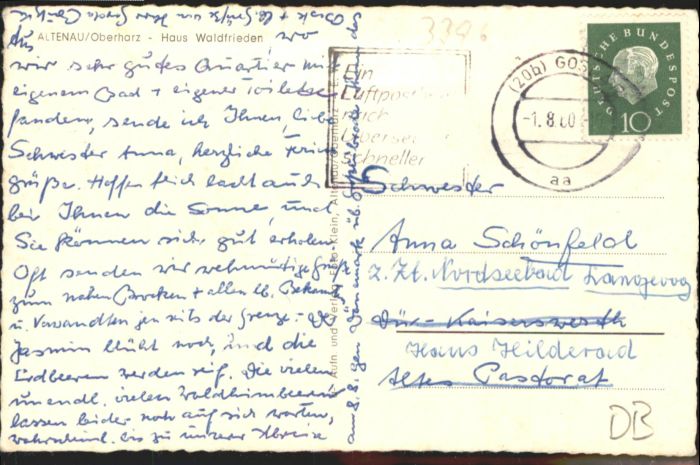 ALTENAU/Oberharz - Haus Waldfrieden
Aus wo
wir sehr gutes Quartier mit
eigenem Bad + eigener Toilette
fanden, sende ich Ihnen, liebe
Schwester Anna, herzliche Ferien
grüße. Hoffentlich lacht auch
bei Ihnen die Sonne, und
Sie können sich gut erholen.
Oft senden wir wehmütige Grüße
zum nahen Brocken + allen lb. Bekannten
u. Verwandten jenseits der Grenze. - Der
Jasmin blüht noch, und die
Erdbeeren werden reif. Die vielen
unendl. vielen Waldhimbeeren
lassen leider noch auf sich warten,
wahrscheinl. bis zu unserer Abreise
am 8.8. gen Dänemark üb.
+ lb. Grüße von Ihrer
Aufn. und Verlag Foto-Klein, Altenau/Oberharz
3396
Ein
Luftpost
nach
Übersee
schneller
(20b) GOS
-1.8.60
aa
DEUTSCHE BUNDESPOST
10
Schwester
Anna Schönfeld
z. Zt. Nordseebad Langeoog
Dür.-Kaiserswerth
Haus Hilderad
Altes Pastorat
DB